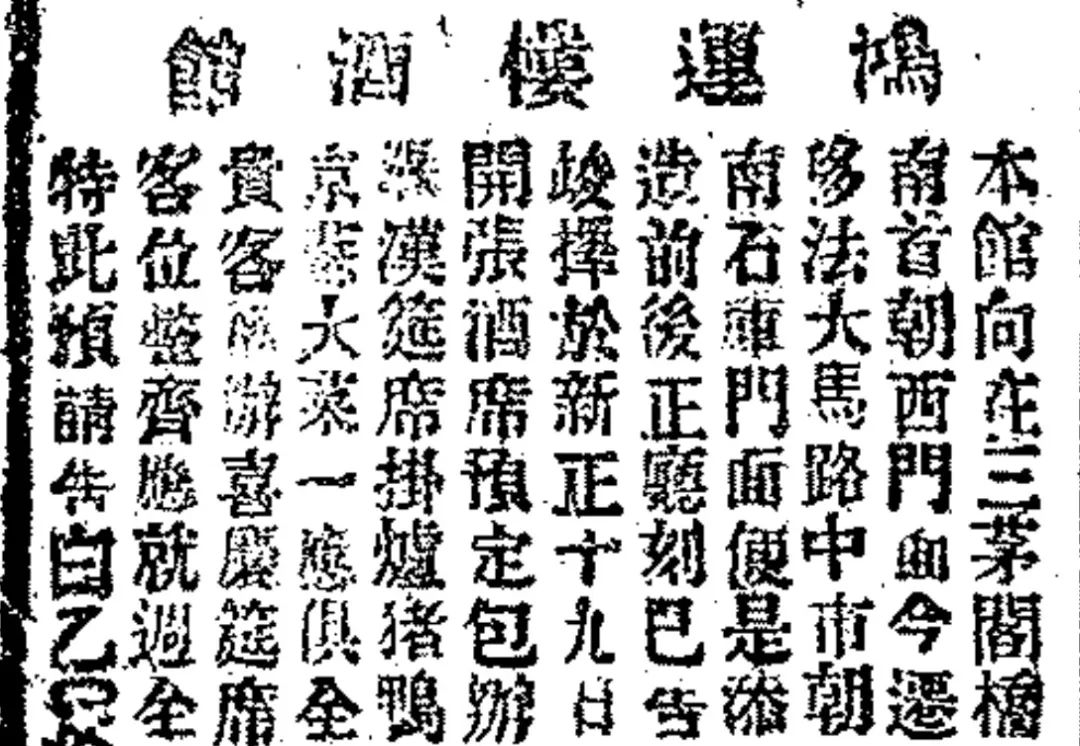 鴻運樓酒館
本館向在三茅閣橋
南首朝西門面今遷
移法大馬路中市朝
南石庫門面便是添
造前後正廳刻已告
竣擇於新正十九日
開張酒席預定包辦
滿漢筵席掛爐猪鴨
京菜大菜一應俱全
貴客 辦喜慶筵席
客位整齊應就週全
特此預請告白乙